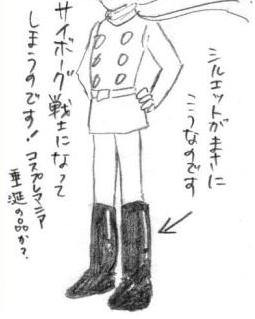 シルエットがまさに
こうなのです
サイボーグ戦士になって
しまうのです！コスプレマニア
垂涎の品か？